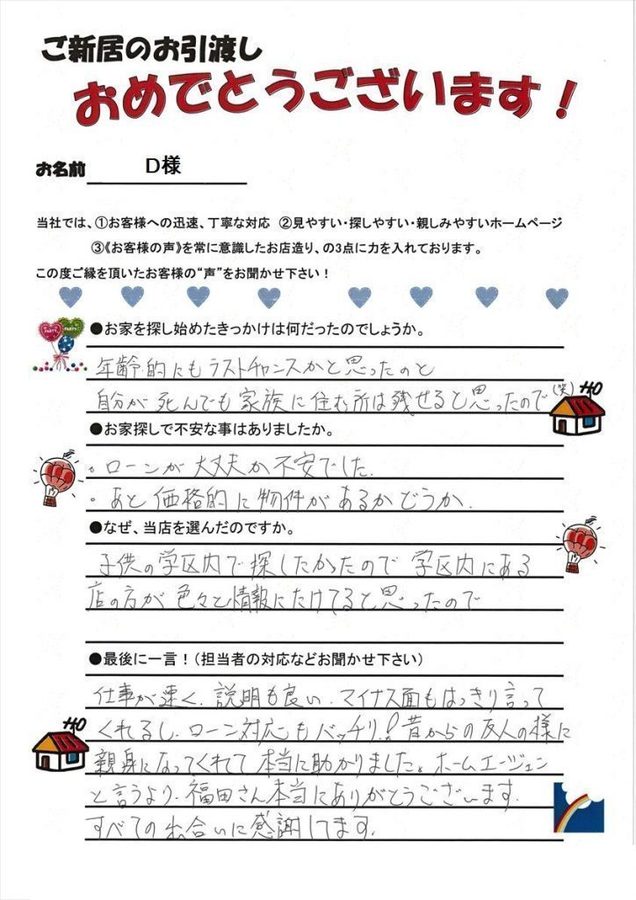 ご新居のお引渡し
おめでとうございます！
お名前 D様
当社では、①お客様への迅速、丁寧な対応 ②見やすい・探しやすい・親しみやすいホームページ
③《お客様の声》を常に意識したお店造り、の3点に力を入れております。
この度ご縁を頂いたお客様の“声”をお聞かせ下さい！
●お家を探し始めたきっかけは何だったのでしょうか。
年齢的にもラストチャンスかと思ったのと
自分が死んでも家族に住む所は残せると思ったので(笑)
●お家探しで不安な事はありましたか。
・ローンが大丈夫か不安でした.
・あと価格的に物件があるかどうか.
●なぜ、当店を選んだのですか。
子供の学区内で探したかったので学区内にある
店の方が色々と情報にたけてると思ったので
●最後に一言！(担当者の対応などお聞かせ下さい)
仕事が速く、説明も良い、マイナス面もはっきり言って
くれるし、ローン対応もバッチリ！昔からの友人の様に
親身になってくれて本当に助かりました。ホームエージェン
と言うより、福田さん本当にありがとうございます.
すべての出合いに感謝してます.